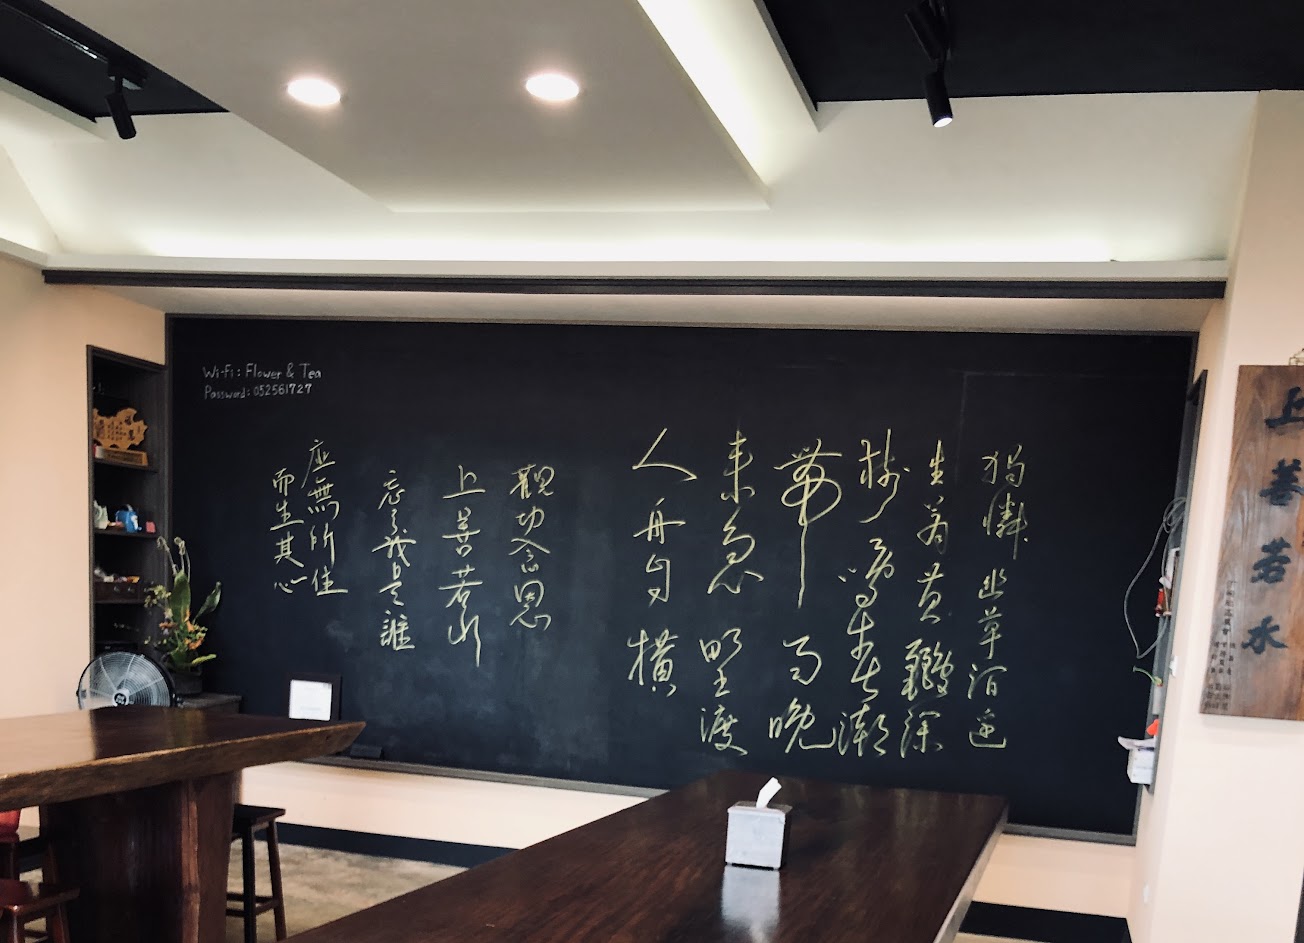 Wi-Fi : Flower & Tea
Password : 052561727
獨憐幽草澗邊
生有黃鸝深
樹鳴春潮
帶雨晚
來急野渡
人舟自橫
觀功念恩
上善若水
忘了我是誰
應無所住
而生其心
上善若水